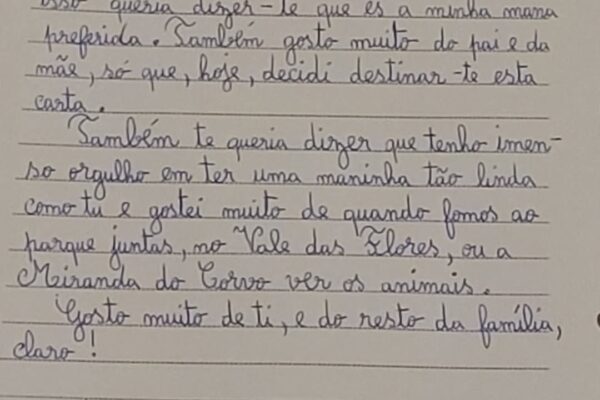 isso queria dizer-te que és a minha mana
preferida. Também gosto muito do pai e da
mãe, só que, hoje, decidi destinar-te esta
carta.
Também te queria dizer que tenho imen-
so orgulho em ter uma maninha tão linda
como tu e gostei muito de quando fomos ao
parque juntas, no Vale das Flores, ou a
Miranda do Corvo ver os animais.
Gosto muito de ti, e do resto da família,
claro!